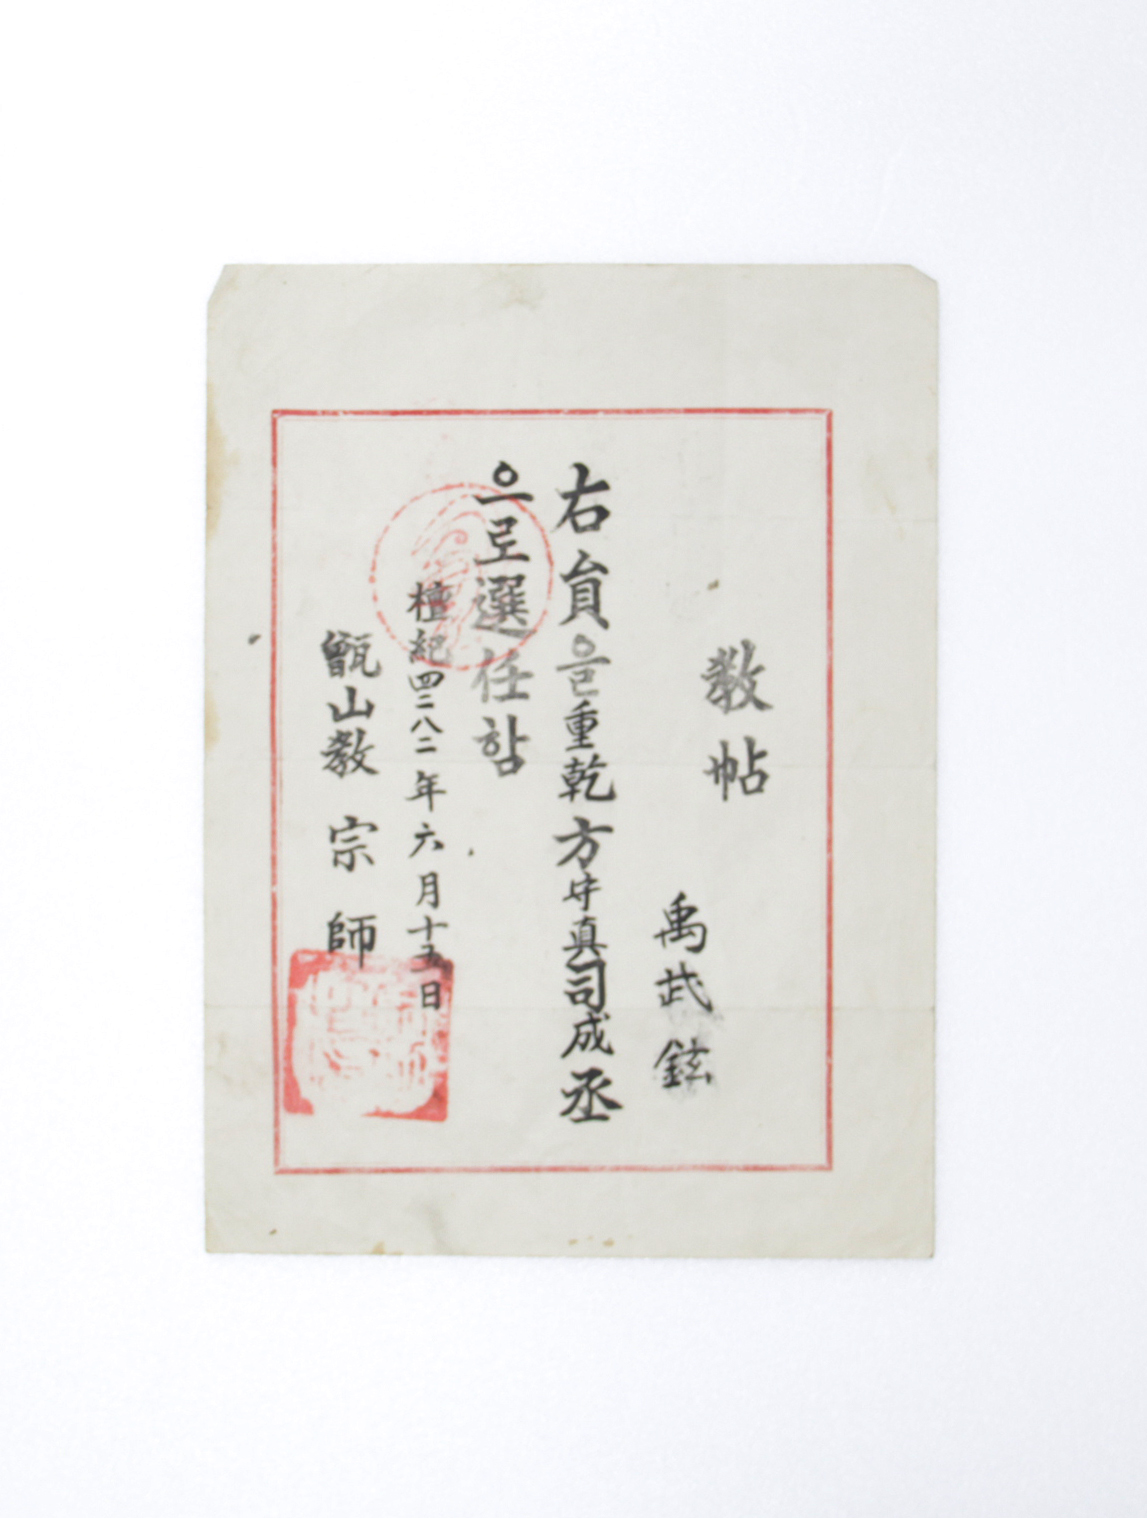 教帖
禹武鉉
右員은重乾方守真司成丞
으로選任함
檀紀四二八二年六月十五日
甑山教宗師